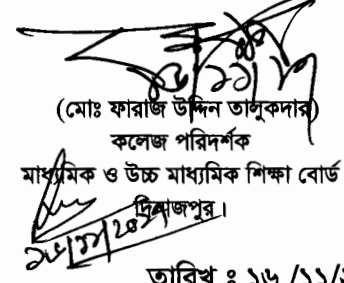 (মোঃ ফারাজ উদ্দিন তালুকদার)
কলেজ পরিদর্শক
মাধ্যমিক ও উচ্চ মাধ্যমিক শিক্ষা বোর্ড
দিনাজপুর।
তারিখ ঃ ১৬ /১১/